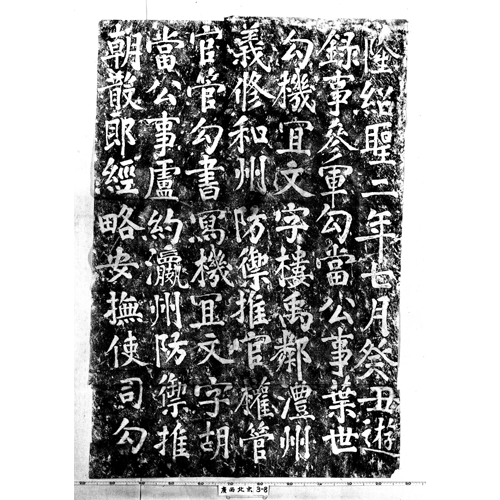 朝散郎經略安撫使司勾
當公事盧約瀛州防禦推
官管勾書寫機宜文字胡
義修和州防禦推官權管
勾機宜文字樓禹鄰澧州
録事參軍勾當公事葉世
紹聖二年七月癸丑遊
廣西北京 3-8